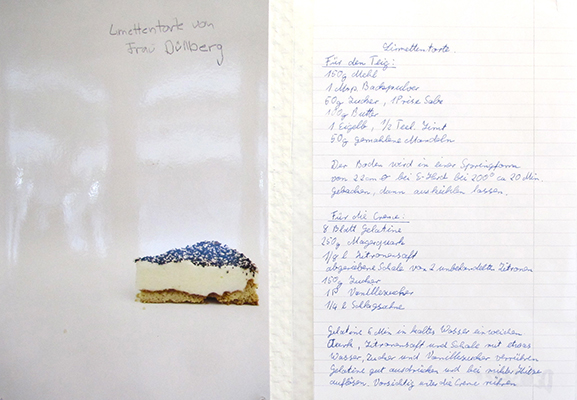 Limettentorte von
Frau Düllberg
Limettentorte.
Für den Teig:
150g Mehl
1 Msp. Backpulver
60g Zucker, 1 Prise Salz
100g Butter
1 Eigelb, 1/2 Teel. Zimt
50g gemahlene Mandeln
Der Boden wird in einer Springform
von 22cm Ø bei E-Herd bei 200° ca 20 Min
gebacken, dann auskühlen lassen.
Für die Creme:
8 Blatt Gelatine
250g Magerquark
1/8 l Zitronensaft
abgeriebene Schale von 2 unbehandelten Zitronen
150g Zucker
1P Vanillezucker
1/4 l Schlagsahne
Gelatine 5 Min in kaltes Wasser einweichen
Quark, Zitronensaft und Schale mit etwas
Wasser, Zucker und Vanillezucker verrühren
Gelatine gut ausdrücken und bei milder Hitze
auflösen. Vorsichtig unter die Creme rühren